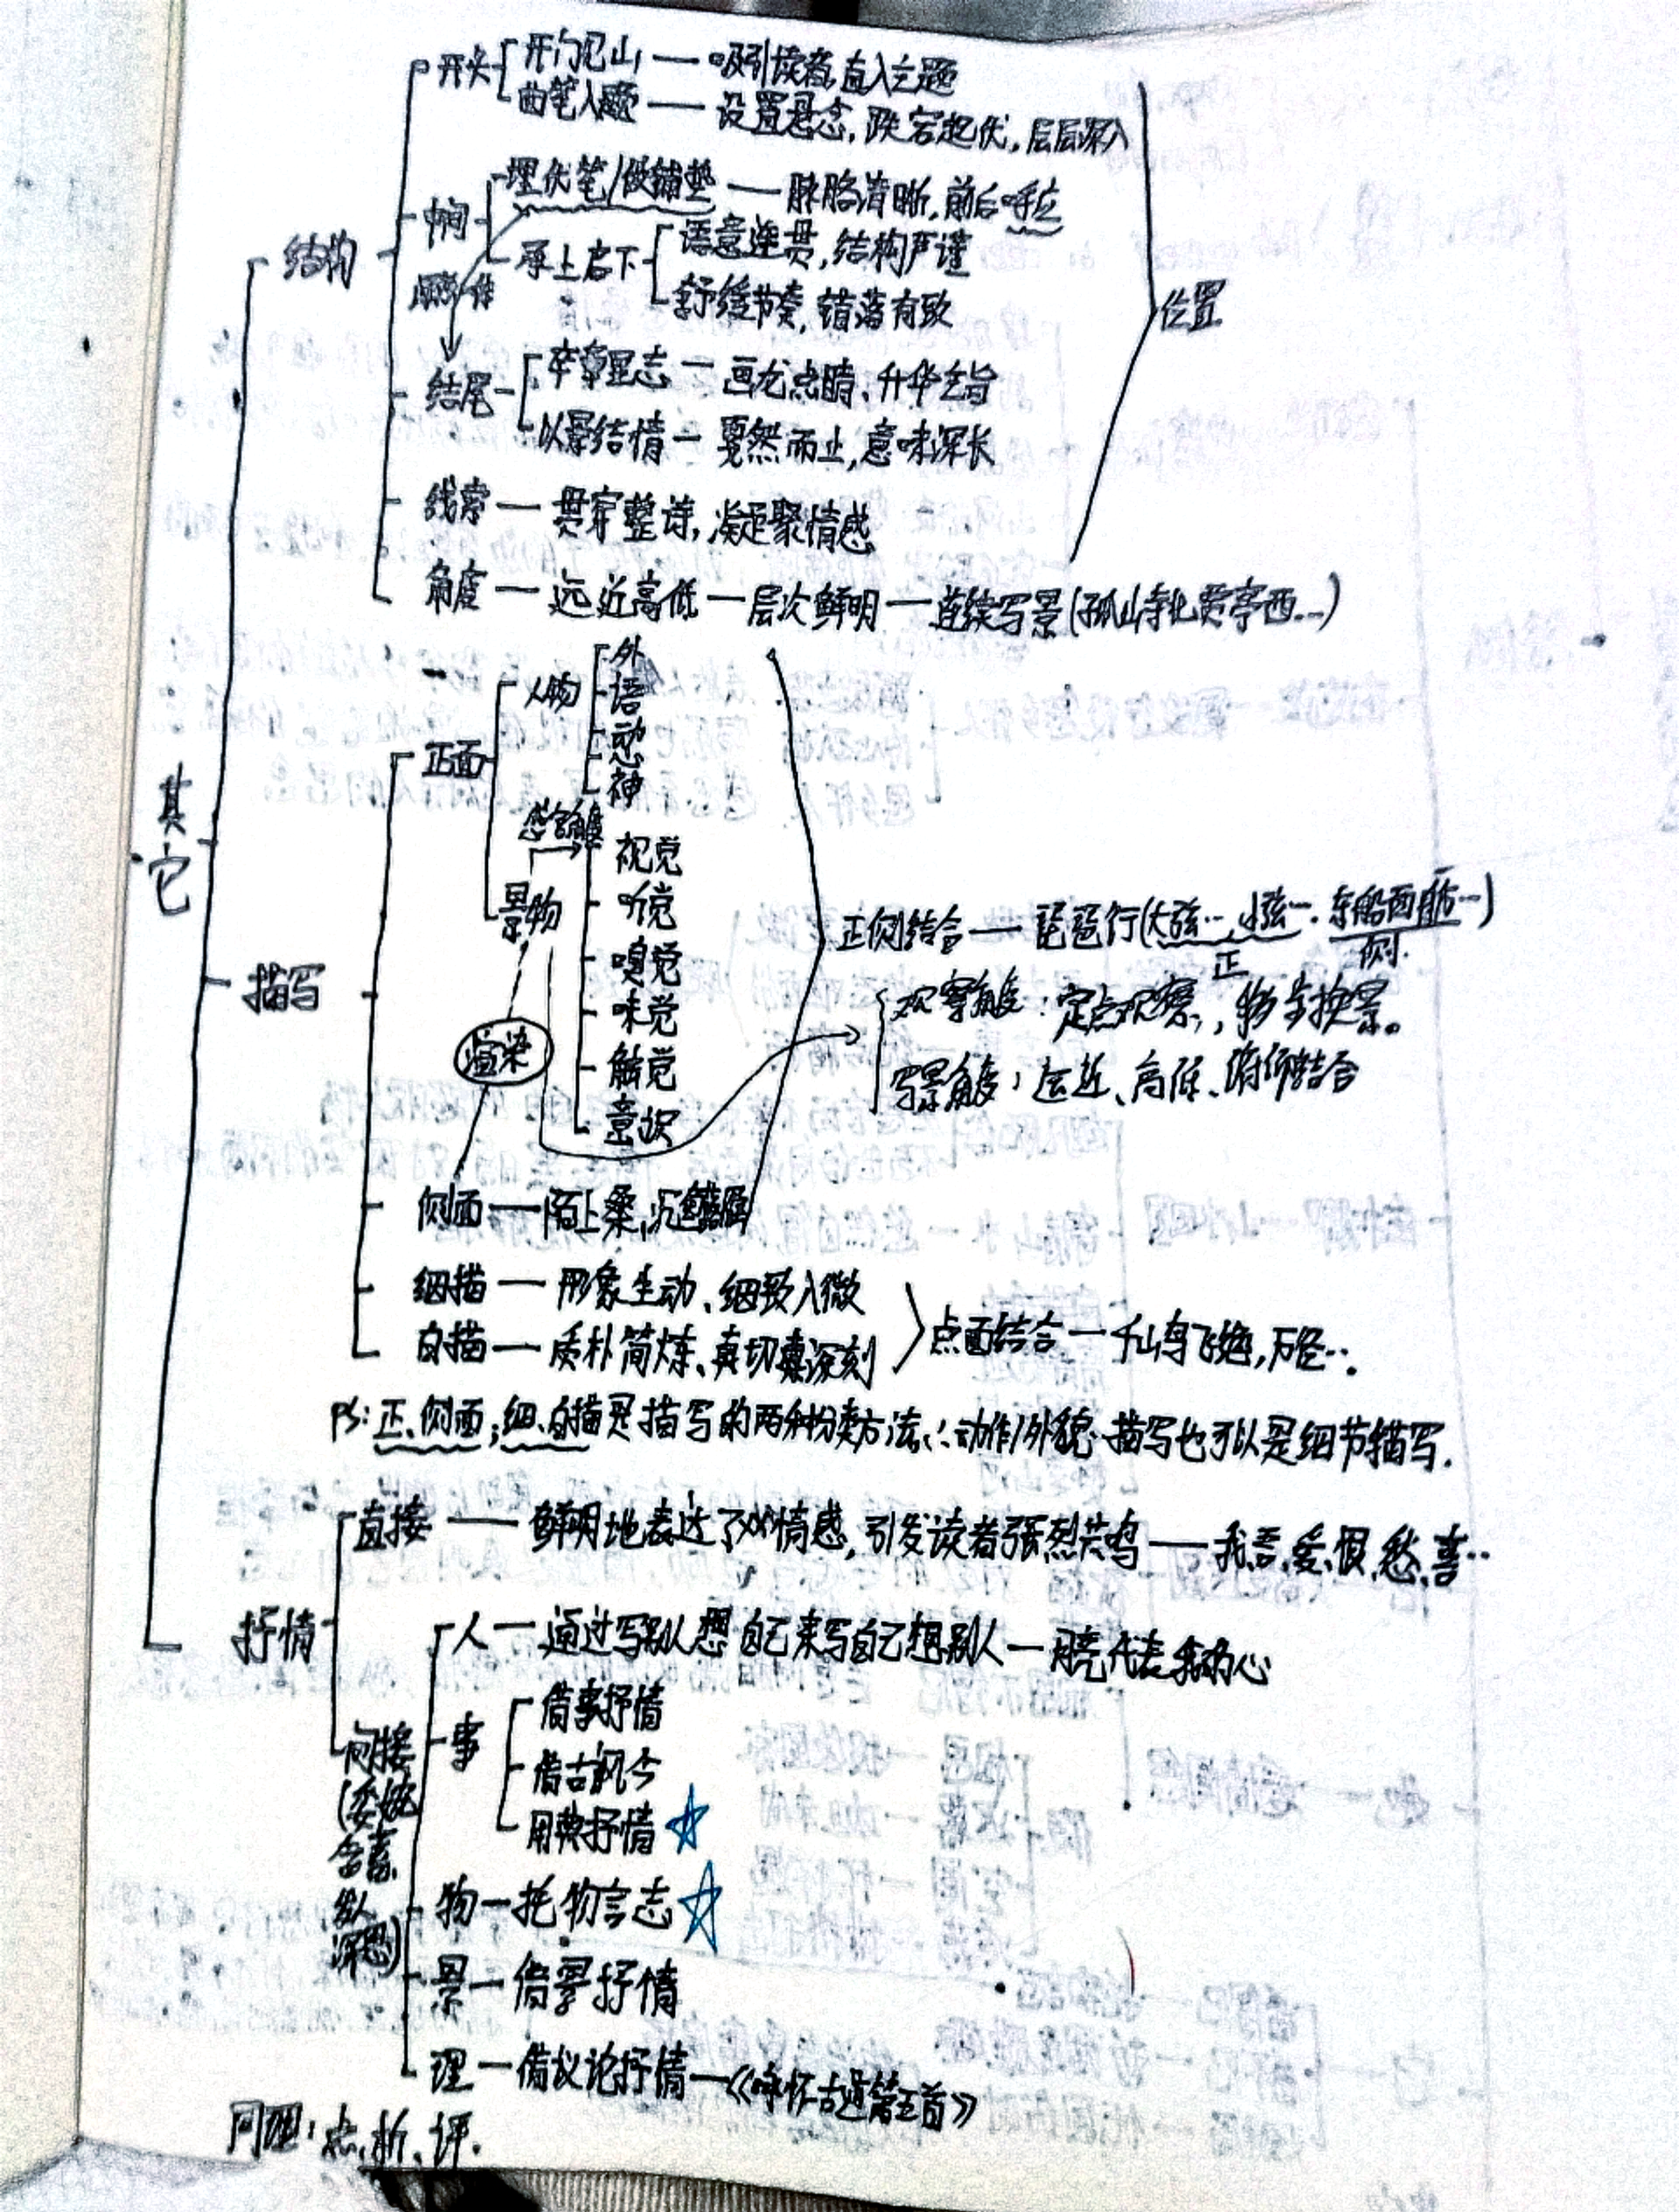 其它
结构
开头
开门见山 — 吸引读者,直入主题
曲笔入题 — 设置悬念,跌宕起伏,层层深入
中间
埋伏笔/做铺垫 — 脉络清晰,前后呼应
承上启下
语意连贯,结构严谨
舒缓节奏,错落有致
结尾
卒章显志 — 画龙点睛、升华主旨
以景结情 — 戛然而止,意味深长
线索 — 贯穿整诗,凝聚情感
角度 — 远近高低 — 层次鲜明 — 连续写景(孤山寺北贾亭西…)
位置
描写
正面
人物
外
语
动
神
景物
视觉
听觉
嗅觉
味觉
触觉
意识
渲染
正侧结合 — 琵琶行(大弦…小弦…东船西舫…)
正
侧.
观察角度:定点观察,移步换景。
写景角度:远近、高低、俯仰结合
侧面 — 陌上桑,
细描 — 形象生动、细致入微
白描 — 质朴简炼、真切深刻
点面结合 — 千山鸟飞绝,万径…
PS:正、侧面;细、白描是描写的两种分类方法,∴动作/外貌描写也可以是细节描写.
抒情
直接 — 鲜明地表达了xx情感,引发读者强烈共鸣 — 我,吾,爱,恨,愁,喜…
间接
(委婉
含蓄
发人
深思)
人 — 通过写别人想自己来写自己想别人 — 月亮代表我的心
事
借事抒情
借古讽今
用典抒情☆
物 — 托物言志☆
景 — 借景抒情
理 — 借议论抒情 —《咏怀古迹第五首》
同理:点、析、评.